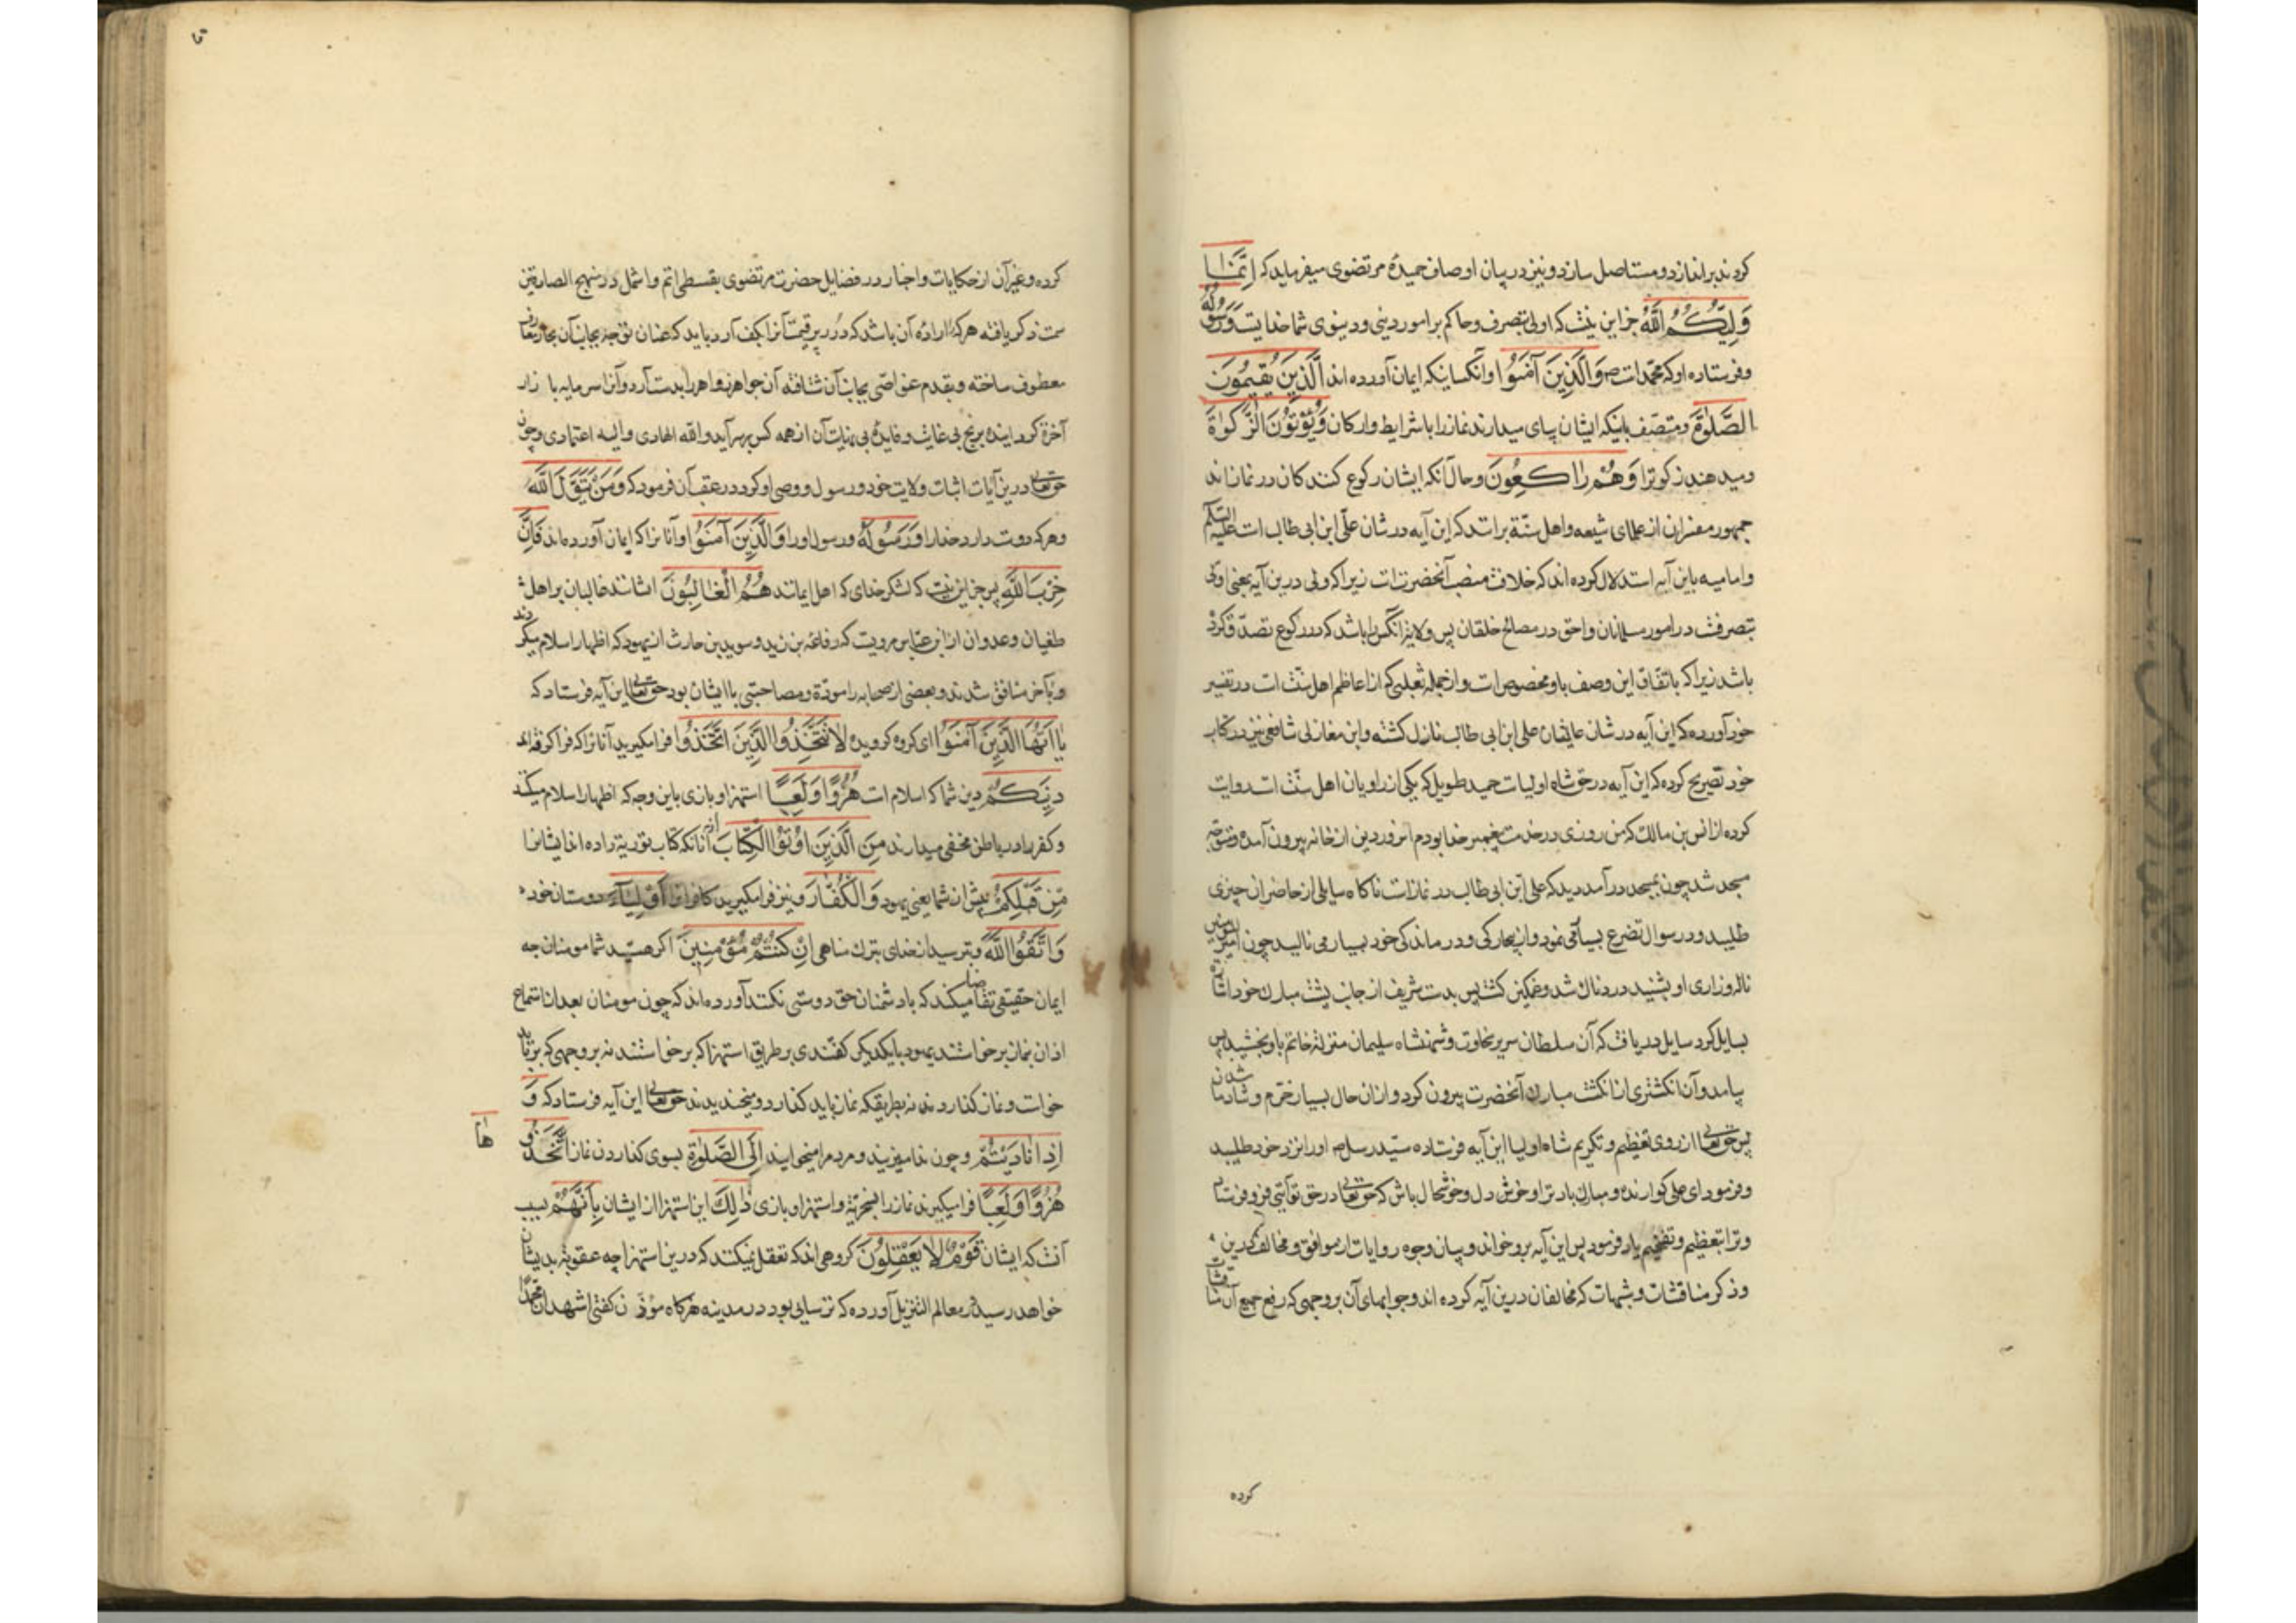 کردند براندازد و مستاصل سازد و نیز در بیان اوصاف حمیدهٔ مرتضوی میفرماید که اِنَّمَا
وَلِیُّکُمُ اللّٰهُ جز این نیست که اولی بتصرف و حاکم بر امور دینی و دینوی شما خدایست وَ رَسُولُهُ
و فرستاده او که محمّد است ص وَالَّذِینَ آمَنُوا و آنکسانیکه ایمان آورده اند الَّذِینَ یُقِیمُونَ
الصَّلٰوةَ و متصف باینکه ایشان بپای میدارند نماز را با شرایط و ارکان وَ یُؤْتُونَ الزَّکٰوةَ
و میدهند زکوة را وَ هُمْ رَاکِعُونَ و حال آنکه ایشان رکوع کنندکان در نماز اند
جمهور مفسران از علمای شیعه و اهل سنّة برانند که این آیه در شان علی ابن ابی طالب است علیه السلام
و امامیه باین آیه استدلال کرده اند که خلافت منصب آنحضرت است زیرا که ولی درین آیه بمعنی اولی
بتصرفست در امور مسلمانان و احق در مصالح خلقان پس ولایة آنکس را باشد که در رکوع تصدّق کرده
باشد زیرا که باتفاق این وصف باو مخصوص است و از جمله ثعلبی که از اعاظم اهل سنّت است در تفسیر
خود آورده که این آیه در شان عالیشان علی ابن ابی طالب نازل کشته و ابن مغازلی شافعی نیز در کتاب
خود تصریح کرده که این آیه در حق شاه اولیاست حمید طویل که یکی از راویان اهل سنّت است روایت
کرده از انس بن مالک که من روزی در خدمت پیغمبر خدا بودم امروز دین از خانه بیرون آمده و متوجه
مسجد شد چون بمسجد درآمد دید که علی ابن ابی طالب در نماز است ناکاه سایلی از حاضران چیزی
طلبید و در سوال تضرع بسیاری نمود و از بیچارکی و درماندکی خود بسیار می نالید چون امیر المؤمنین
ناله و زاری او بشنید دردناک شد و غمکین کشت پس بدست شریف از جانب پشت مبارک خود اشارت
بسایل کرد سایل دریافت که آن سلطان سریر سخاوت و شهنشاه سلیمان منزلت خاتم باو بخشید پس
بیامد و آن انکشتری از انکشت مبارک آنحضرت بیرون کرد و از ان حال بسیار خرّم و شادمان شد
پس حق تعالی از روی تعظیم و تکریم شاه اولیا این آیه فرستاده سیّد رسل ص او را نزد خود طلبید
و فرمود ای علی کوارنده و مبارک باد ترا و خوش دل و خوشحال باش که حق تعالی در حق تو آیتی فرو فرستاد
و ترا بتعظیم و تفخیم یاد فرمود پس این آیه برو خواند و بیان وجوه روایات از موافق و مخالف که درین
و ذکر مناقشات و شبهات که مخالفان درین آیه کرده اند و جوابهای آن بر وجهی که رفع جمیع آن مناقشات
کرده
کرده و غیر آن از حکایات و اخبار در فضایل حضرت مرتضوی بقسطی اتم و اشمل در منهج الصادقین
سمت ذکر یافته هر که را اراده آن باشد که درر پر قیمت آنرا بکف آرد باید که عنان توجه بجانب آن بحار معارف
معطوف ساخته و بقدم غواصّی بجانب آن شتافته آن جواهر زواهر را بدست آرد و آنرا سرمایه بازار
آخرة کرداند برنج بی غایت و فایدهٔ بی نهایت آن از همه کس بهر آید و الله الهادی و الیه اعتمادی و چون
حق تعالی درین آیات اثبات ولایت خود و رسول و وصی او کرد در عقب آن فرمود که وَ مَنْ یَتَوَلَّ اللّٰهَ
و هر که دوست دارد خدا را وَ رَسُولَهُ و رسول او را وَالَّذِینَ آمَنُوا و آنانرا که ایمان آورده اند فَاِنَّ
حِزْبَ اللّٰهِ پس جز این نیست که لشکر خدای که اهل ایمانند هُمُ الْغَالِبُونَ ایشانند غالبان بر اهل
طغیان و عدوان از ابن عباس مرویست که رفاعه بن زید و سوید بن حارث از یهود که اظهار اسلام میکردند
و بآخر منافق شدند و بعضی از صحابه را مودّة و مصاحبتی با ایشان بود حق تعالی این آیه فرستاد که
یَا اَیُّهَا الَّذِینَ آمَنُوا ای کروه کرویده لَا تَتَّخِذُوا الَّذِینَ اتَّخَذُوا فرا مکیرید آنانرا که فرا کرفته اند
دِینَکُمْ دین شما که اسلام است هُزُوًا وَ لَعِبًا استهزا و بازی باین وجه که اظهار اسلام میکنند
و کفر را در باطن مخفی میدارند مِنَ الَّذِینَ اُوتُوا الْکِتَابَ از آنانکه کتاب توریة داده اند ایشانرا
مِنْ قَبْلِکُمْ پیش از شما یعنی یهود وَالْکُفَّارَ و نیز فرا مکیرید کافرانرا اَوْلِیَآءَ دوستان خود
وَاتَّقُوا اللّٰهَ و بترسید از خدای بترک مناهی اِنْ کُنْتُمْ مُؤْمِنِینَ اکر هستید شما مومنان چه
ایمان حقیقی تقاضا میکند که با دشمنان حق دوستی نکنند آورده اند که چون مومنان بعد از استماع
اذان بنماز برخواستند یهود با یکدیکر کفتندی بر طریق استهزا که برخواستند نه بر وجهی که برباید
خواست و نماز کذاردند نه بطریقکه نماز باید کذارد و میخندیدند حق تعالی این آیه فرستاد که وَ
اِذَا نَادَیْتُمْ و چون ندا میزنید و مردم را میخوانید اِلَی الصَّلٰوةِ بسوی کذاردن نماز اتَّخَذُوهَا
هُزُوًا وَ لَعِبًا فرا میکیرند نماز را بسخریّة و استهزا و بازی ذٰلِکَ این استهزا از ایشان بِاَنَّهُمْ بسبب
آنست که ایشان قَوْمٌ لَا یَعْقِلُونَ کروهی اند که تعقل نمیکنند که درین استهزا چه عقوبة بدیشان
خواهد رسید در معالم التنزیل آورده که ترسایی بود در مدینه هرکاه مؤذن کفتی اشهد ان محمّدًا